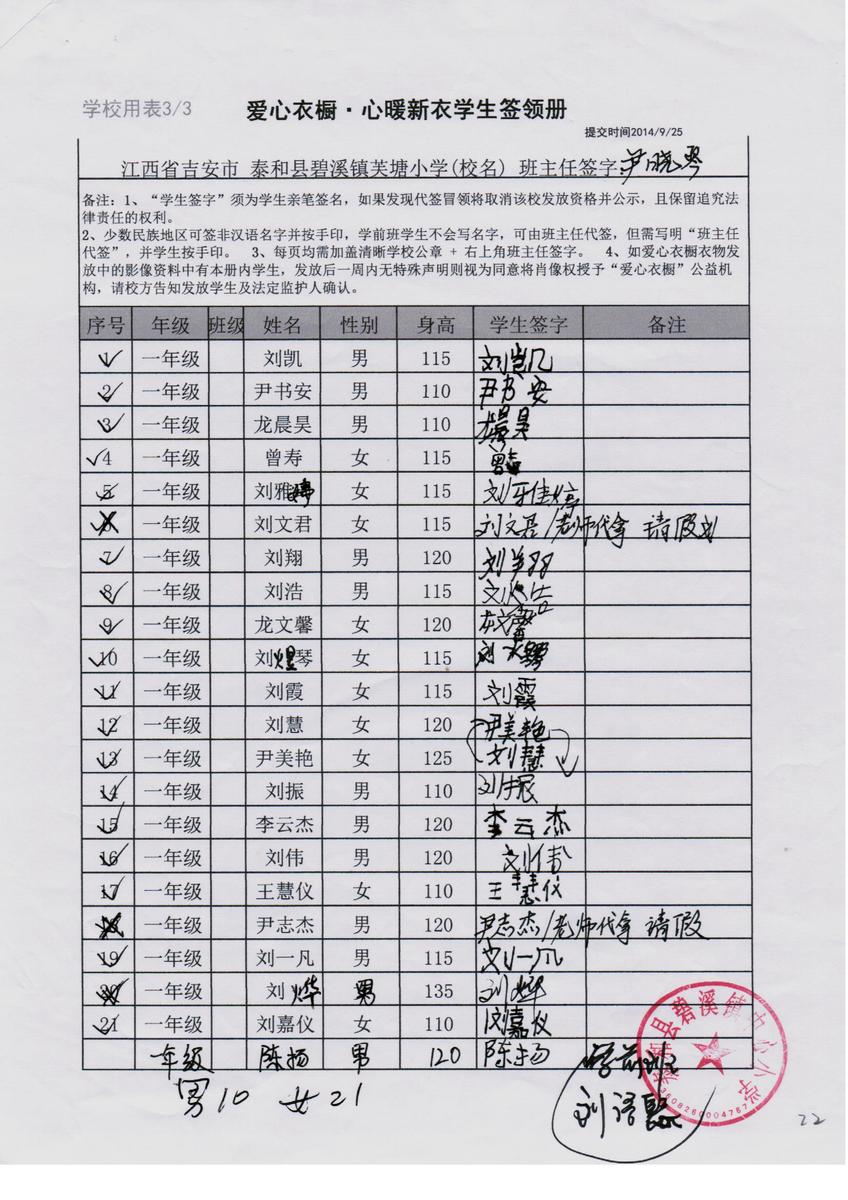 学校用表3/3
爱心衣橱·心暖新衣学生签领册
提交时间2014/9/25
江西省吉安市 泰和县碧溪镇芙塘小学(校名) 班主任签字:尹晓琴
备注:1、“学生签字”须为学生亲笔签名，如果发现代签冒领将取消该校发放资格并公示，且保留追究法
律责任的权利。
2、少数民族地区可签非汉语名字并按手印，学前班学生不会写名字，可由班主任代签，但需写明“班主任
代签”，并学生按手印。 3、每页均需加盖清晰学校公章 + 右上角班主任签字。 4、如爱心衣橱衣物发
放中的影像资料中有本册内学生，发放后一周内无特殊声明则视为同意将肖像权授予“爱心衣橱”公益机
构，请校方告知发放学生及法定监护人确认。
序号 年级 班级 姓名 性别 身高 学生签字 备注
1 一年级 刘凯 男 115 刘凯
2 一年级 尹书安 男 110 尹书安
3 一年级 龙晨昊 男 110 龙晨昊
4 一年级 曾寿 女 115
5 一年级 刘雅婷 女 115 刘雅婷
6 一年级 刘文君 女 115 刘文君/老师代拿 请假
7 一年级 刘翔 男 120 刘翔
8 一年级 刘浩 男 115 刘浩
9 一年级 龙文馨 女 120 龙文馨
10 一年级 刘煜琴 女 115
11 一年级 刘霞 女 115 刘霞
12 一年级 刘慧 女 120 尹美艳
13 一年级 尹美艳 女 125 刘慧
14 一年级 刘振 男 110 刘振
15 一年级 李云杰 男 120 李云杰
16 一年级 刘伟 男 120 刘伟
17 一年级 王慧仪 女 110 王慧仪
18 一年级 尹志杰 男 120 尹志杰/老师代拿 请假
19 一年级 刘一凡 男 115 刘一凡
20 一年级 刘烨 男 135 刘烨
21 一年级 刘嘉仪 女 110 刘嘉仪
一年级 陈扬 男 120 陈扬
男10 女21
学前班
泰和县碧溪镇中心小学
3608260004767
22